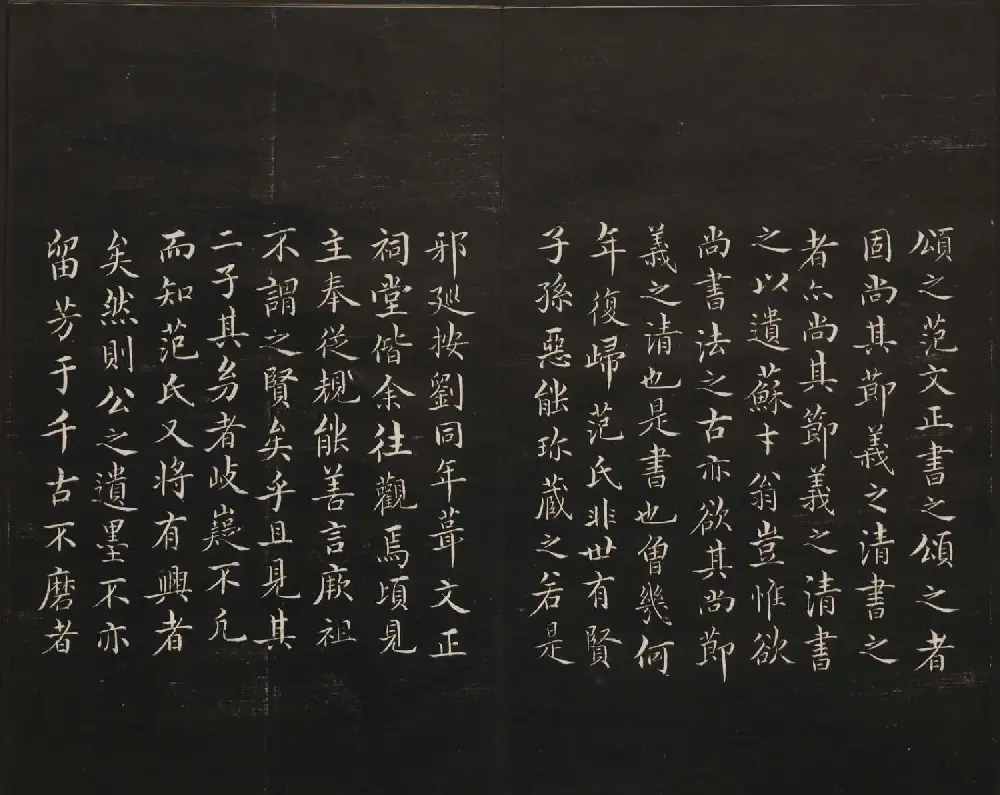 頌之范文正書之頌之者
固尚其節義之清書之
者亦尚其節義之清書
之以遺蘇才翁豈惟欲
尚書法之古亦欲其尚節
義之清也是書也曾幾何
年復歸范氏非世有賢
子孫惡能珎蔵之若是
邪廵按劉同年葺文正
祠堂偕余往觀焉頃見
主奉従規能善言厥祖
不謂之賢矣乎且見其
二子其㓜者歧嶷不凢
而知范氏又将有興者
矣然則公之遺墨不亦
留芳于千古不磨者